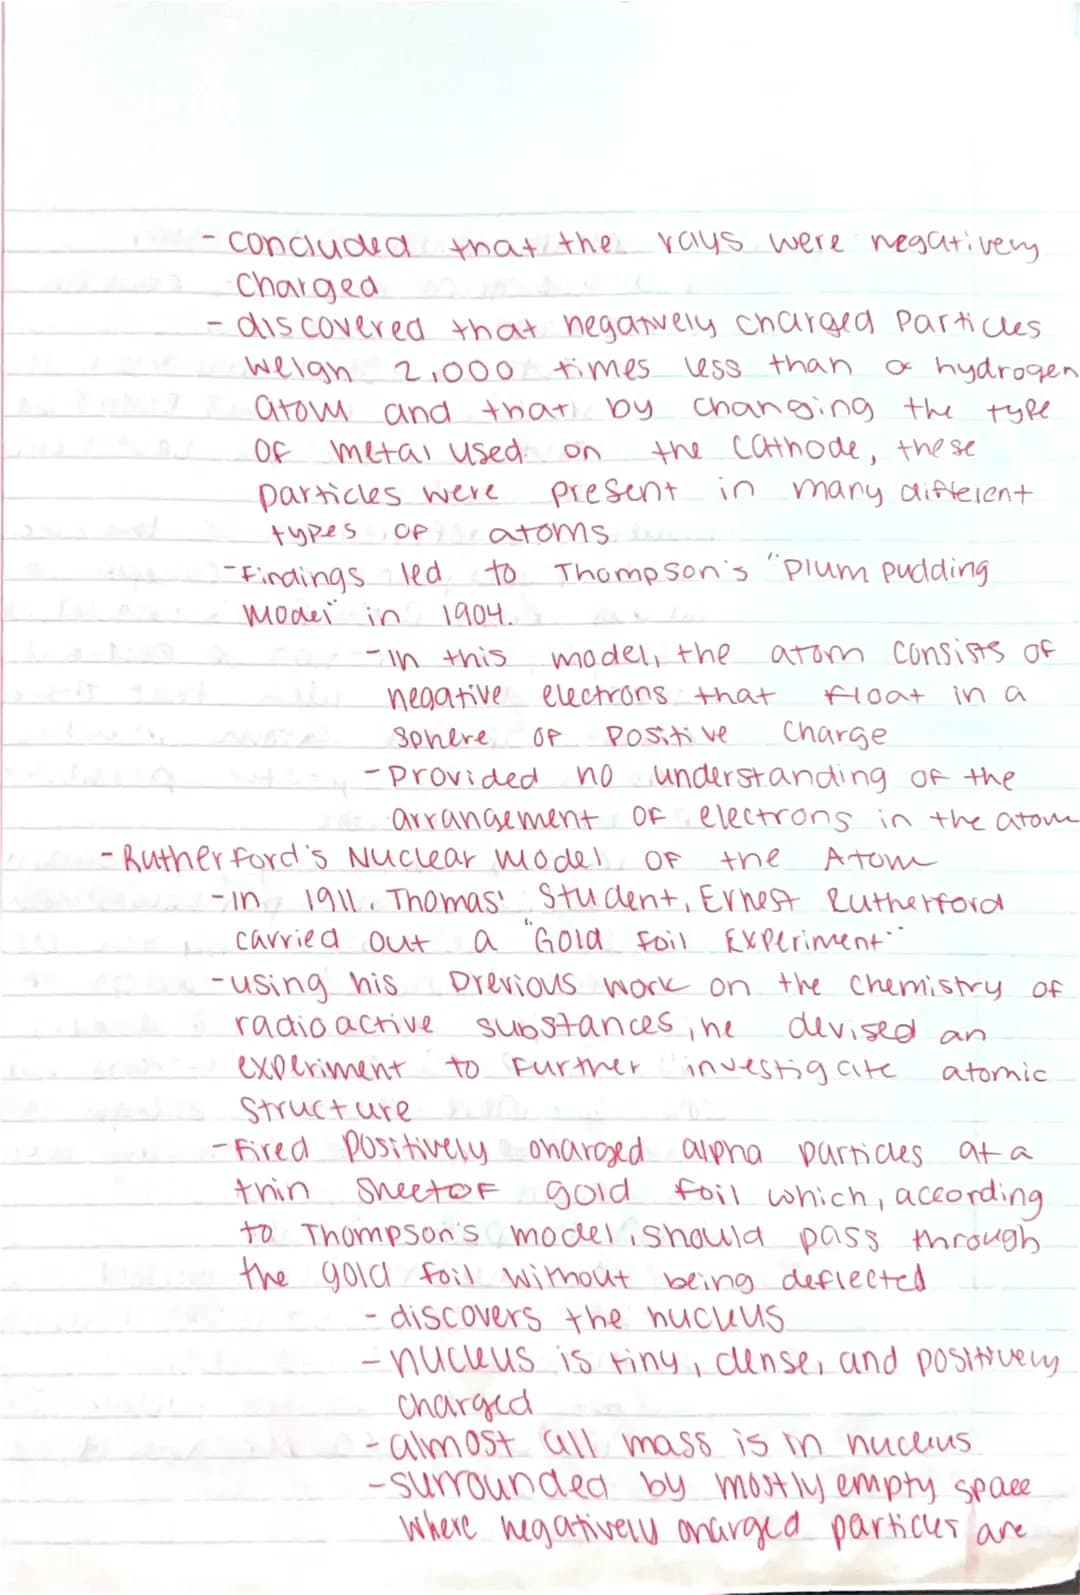 - concluded that the rays were negatively
charged
- discovered that negatively charged particles
weigh 2,000 times less than a hydrogen
atom and that by changing the type
of metal used on the cathode, these
particles were present in many different
types of atoms
- Findings led to Thompson's "Plum pudding
Model" in 1904.
- in this model, the atom consists of
negative electrons that float in a
sphere of positive charge
- provided no understanding of the
arrangement of electrons in the atom
- Rutherford's Nuclear Model of the Atom
- in 1911, Thomas' Student, Ernest Rutherford
carried out a "Gold Foil Experiment"
- using his previous work on the chemistry of
radioactive substances, he devised an
experiment to further investigate atomic
structure
- Fired positively charged alpha particles at a
thin sheet of gold foil which, according
to Thompson's model, should pass through
the gold foil without being deflected
- discovers the nucleus
- nucleus is tiny, dense, and positively
charged
- almost all mass is in nucleus
- surrounded by mostly empty space
where negatively charged particles are